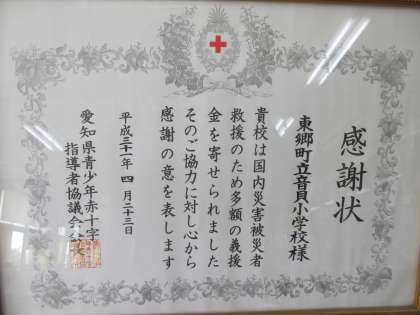 感謝状
東郷町立音貝小学校様
貴校は国内災害被災者
救援のため多額の義援
金を寄せられました
そのご協力に対し心から
感謝の意を表します
平成三十一年四月二十三日
愛知県青少年赤十字
指導者協議会